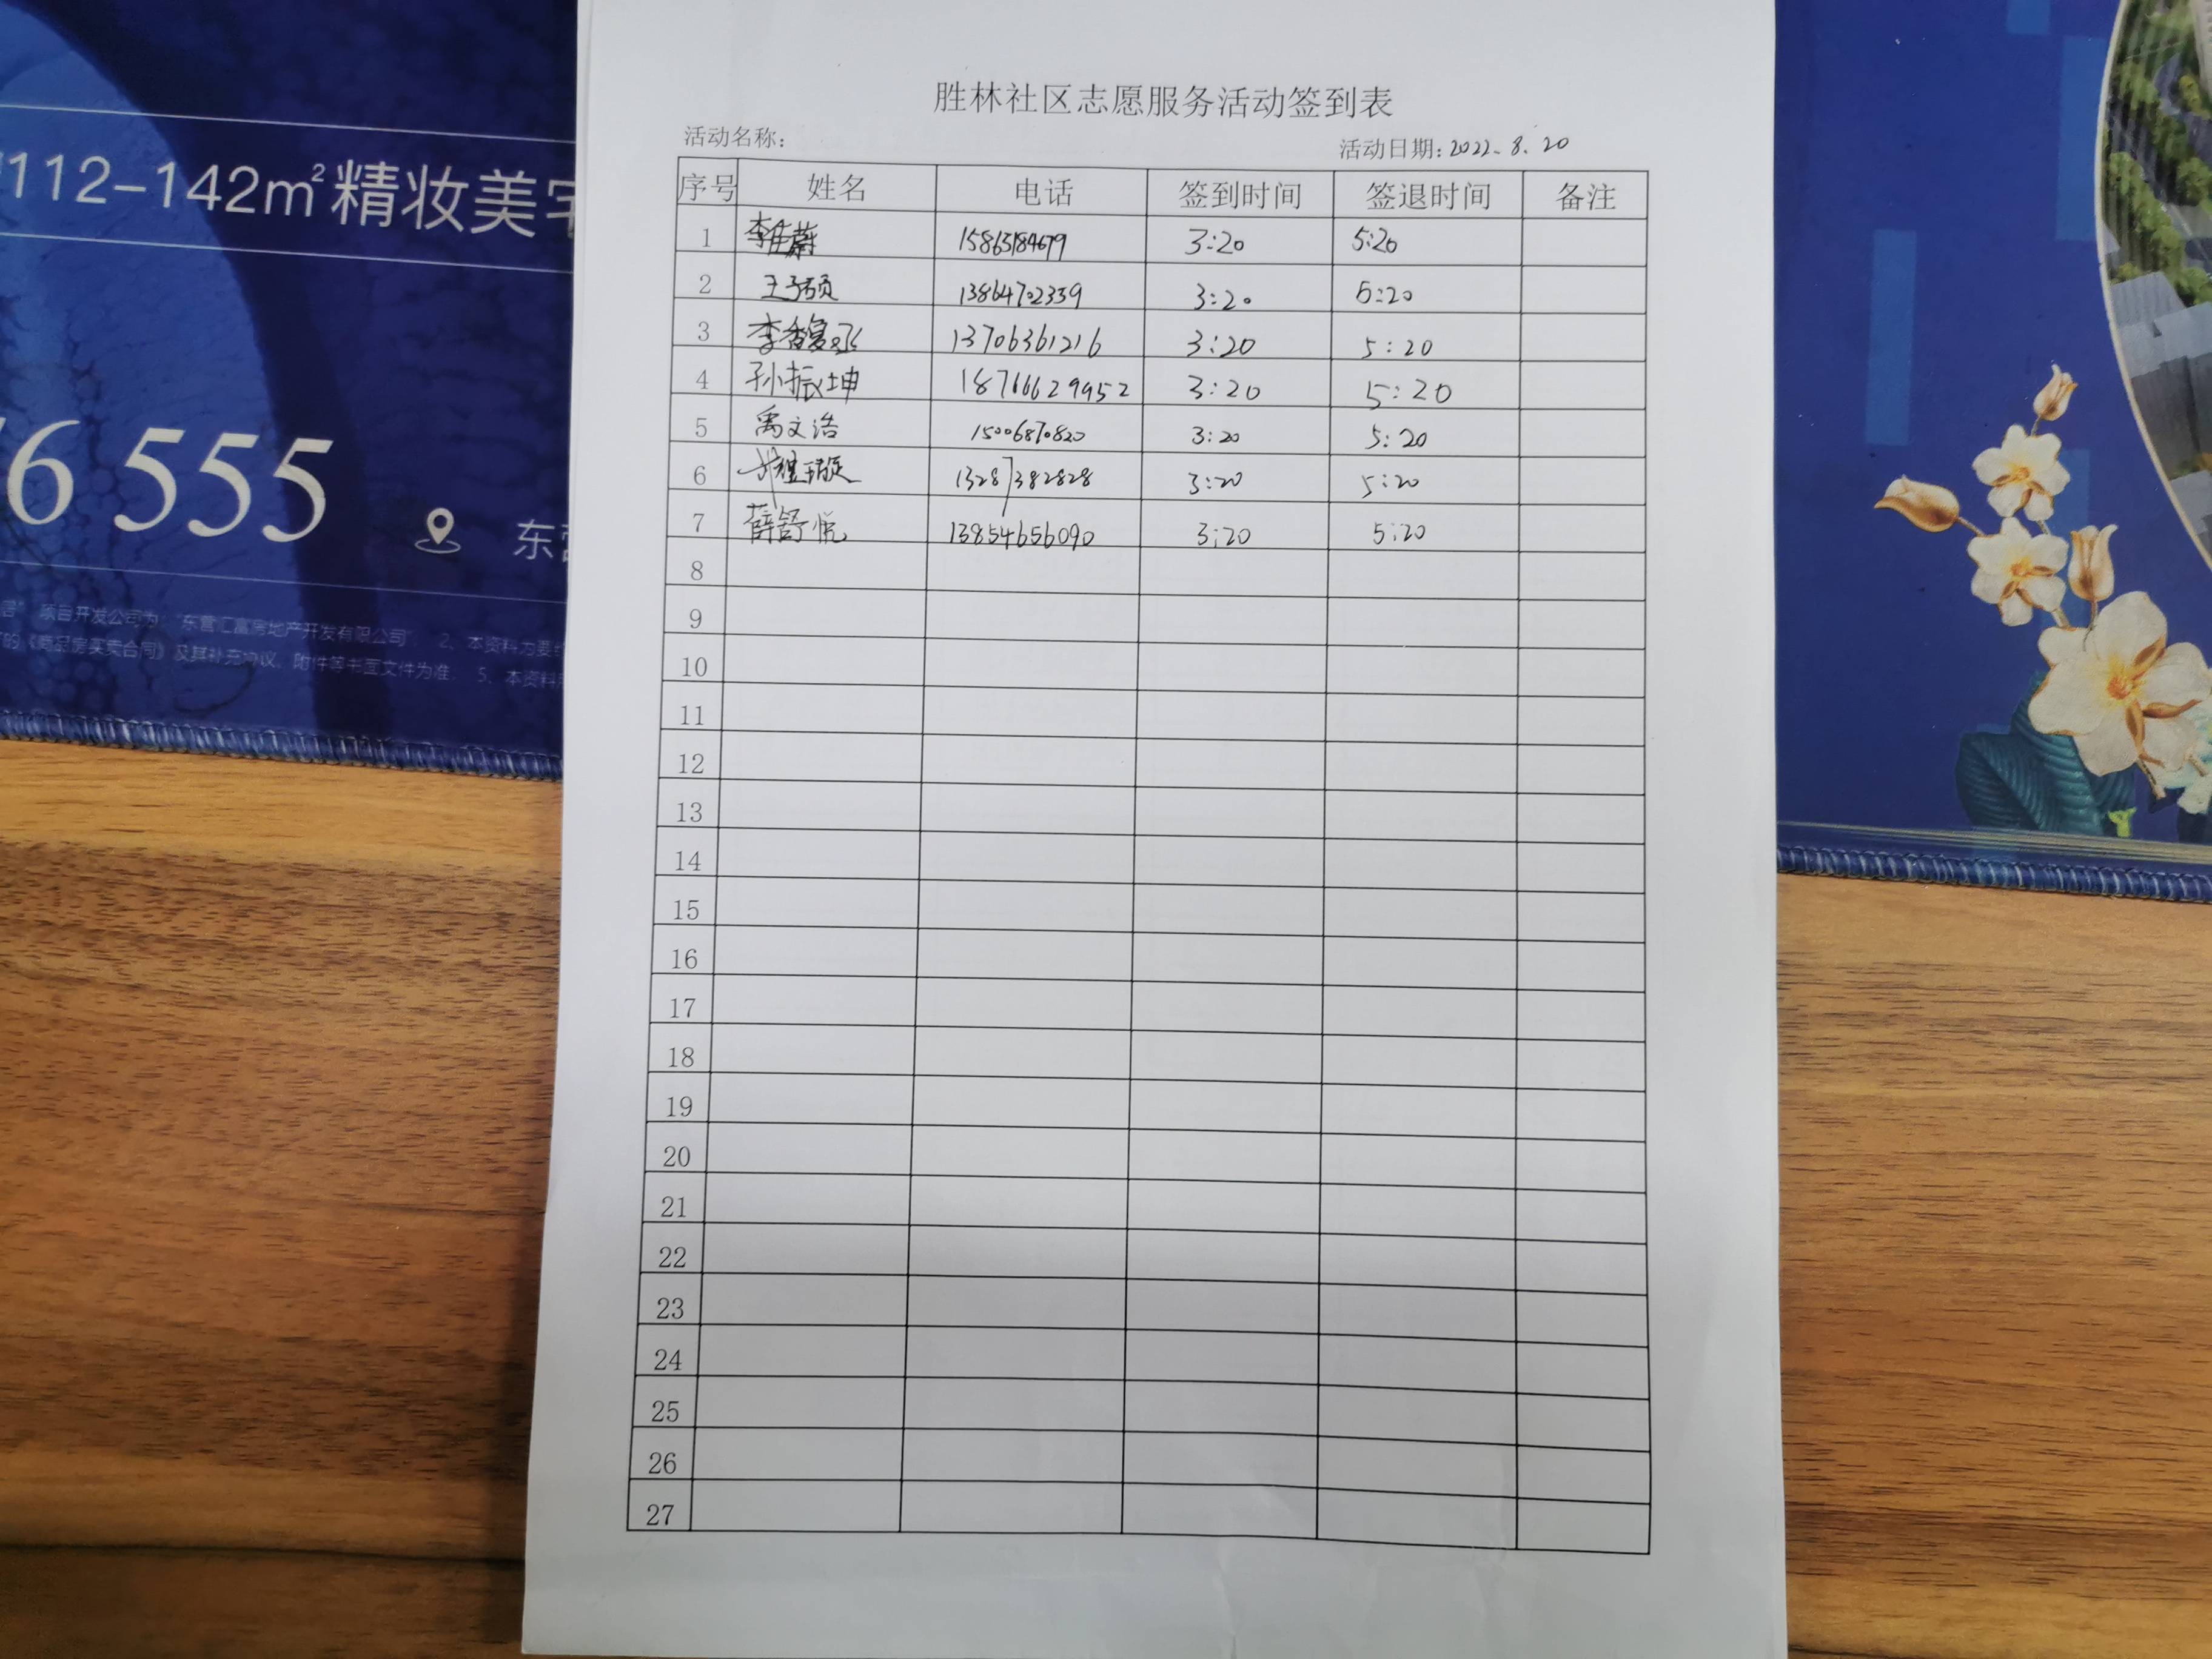 112-142㎡精妆美宅
6 555
东营
居" 项目开发公司为:"东营汇富房地产开发有限公司". 2、本资料为要约
的《商品房买卖合同》及其补充协议、附件等书面文件为准. 5、本资料
胜林社区志愿服务活动签到表
活动名称: 活动日期:2022.8.20
序号 姓名 电话 签到时间 签退时间 备注
1 李佳蔚 3:20 5:20
2 王子硕 13864702339 3:20 5:20
3 李馥丞 13706361216 3:20 5:20
4 孙振坤 18766629952 3:20 5:20
5 禹文浩 15006870820 3:20 5:20
6 13287382828 3:20 5:20
7 薛舒悦 13854656090 3:20 5:20
8
9
10
11
12
13
14
15
16
17
18
19
20
21
22
23
24
25
26
27